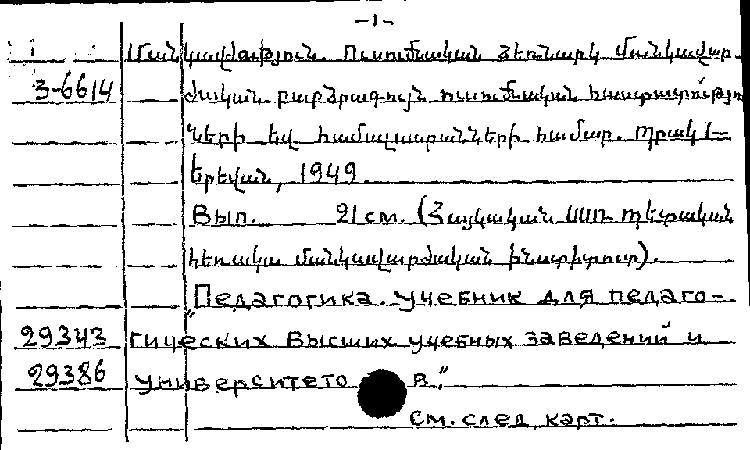 -1-
Մանկավարժություն. Ուսումնական ձեռնարկ մանկավար-
3-6614 ժական բարձրագույն ուսումնական հաստատություն
ների եվ համալսարանների համար. Պրակ 1—
Երեվան, 1949.
Вып. 21 см. (Հայկական ՍՍՌ պետական
հեռակա մանկավարժական ինստիտուտ).
"Педагогика. Учебник для педаго-
29343 гических высших учебных заведений и
29386 университетов."
См. след. карт.